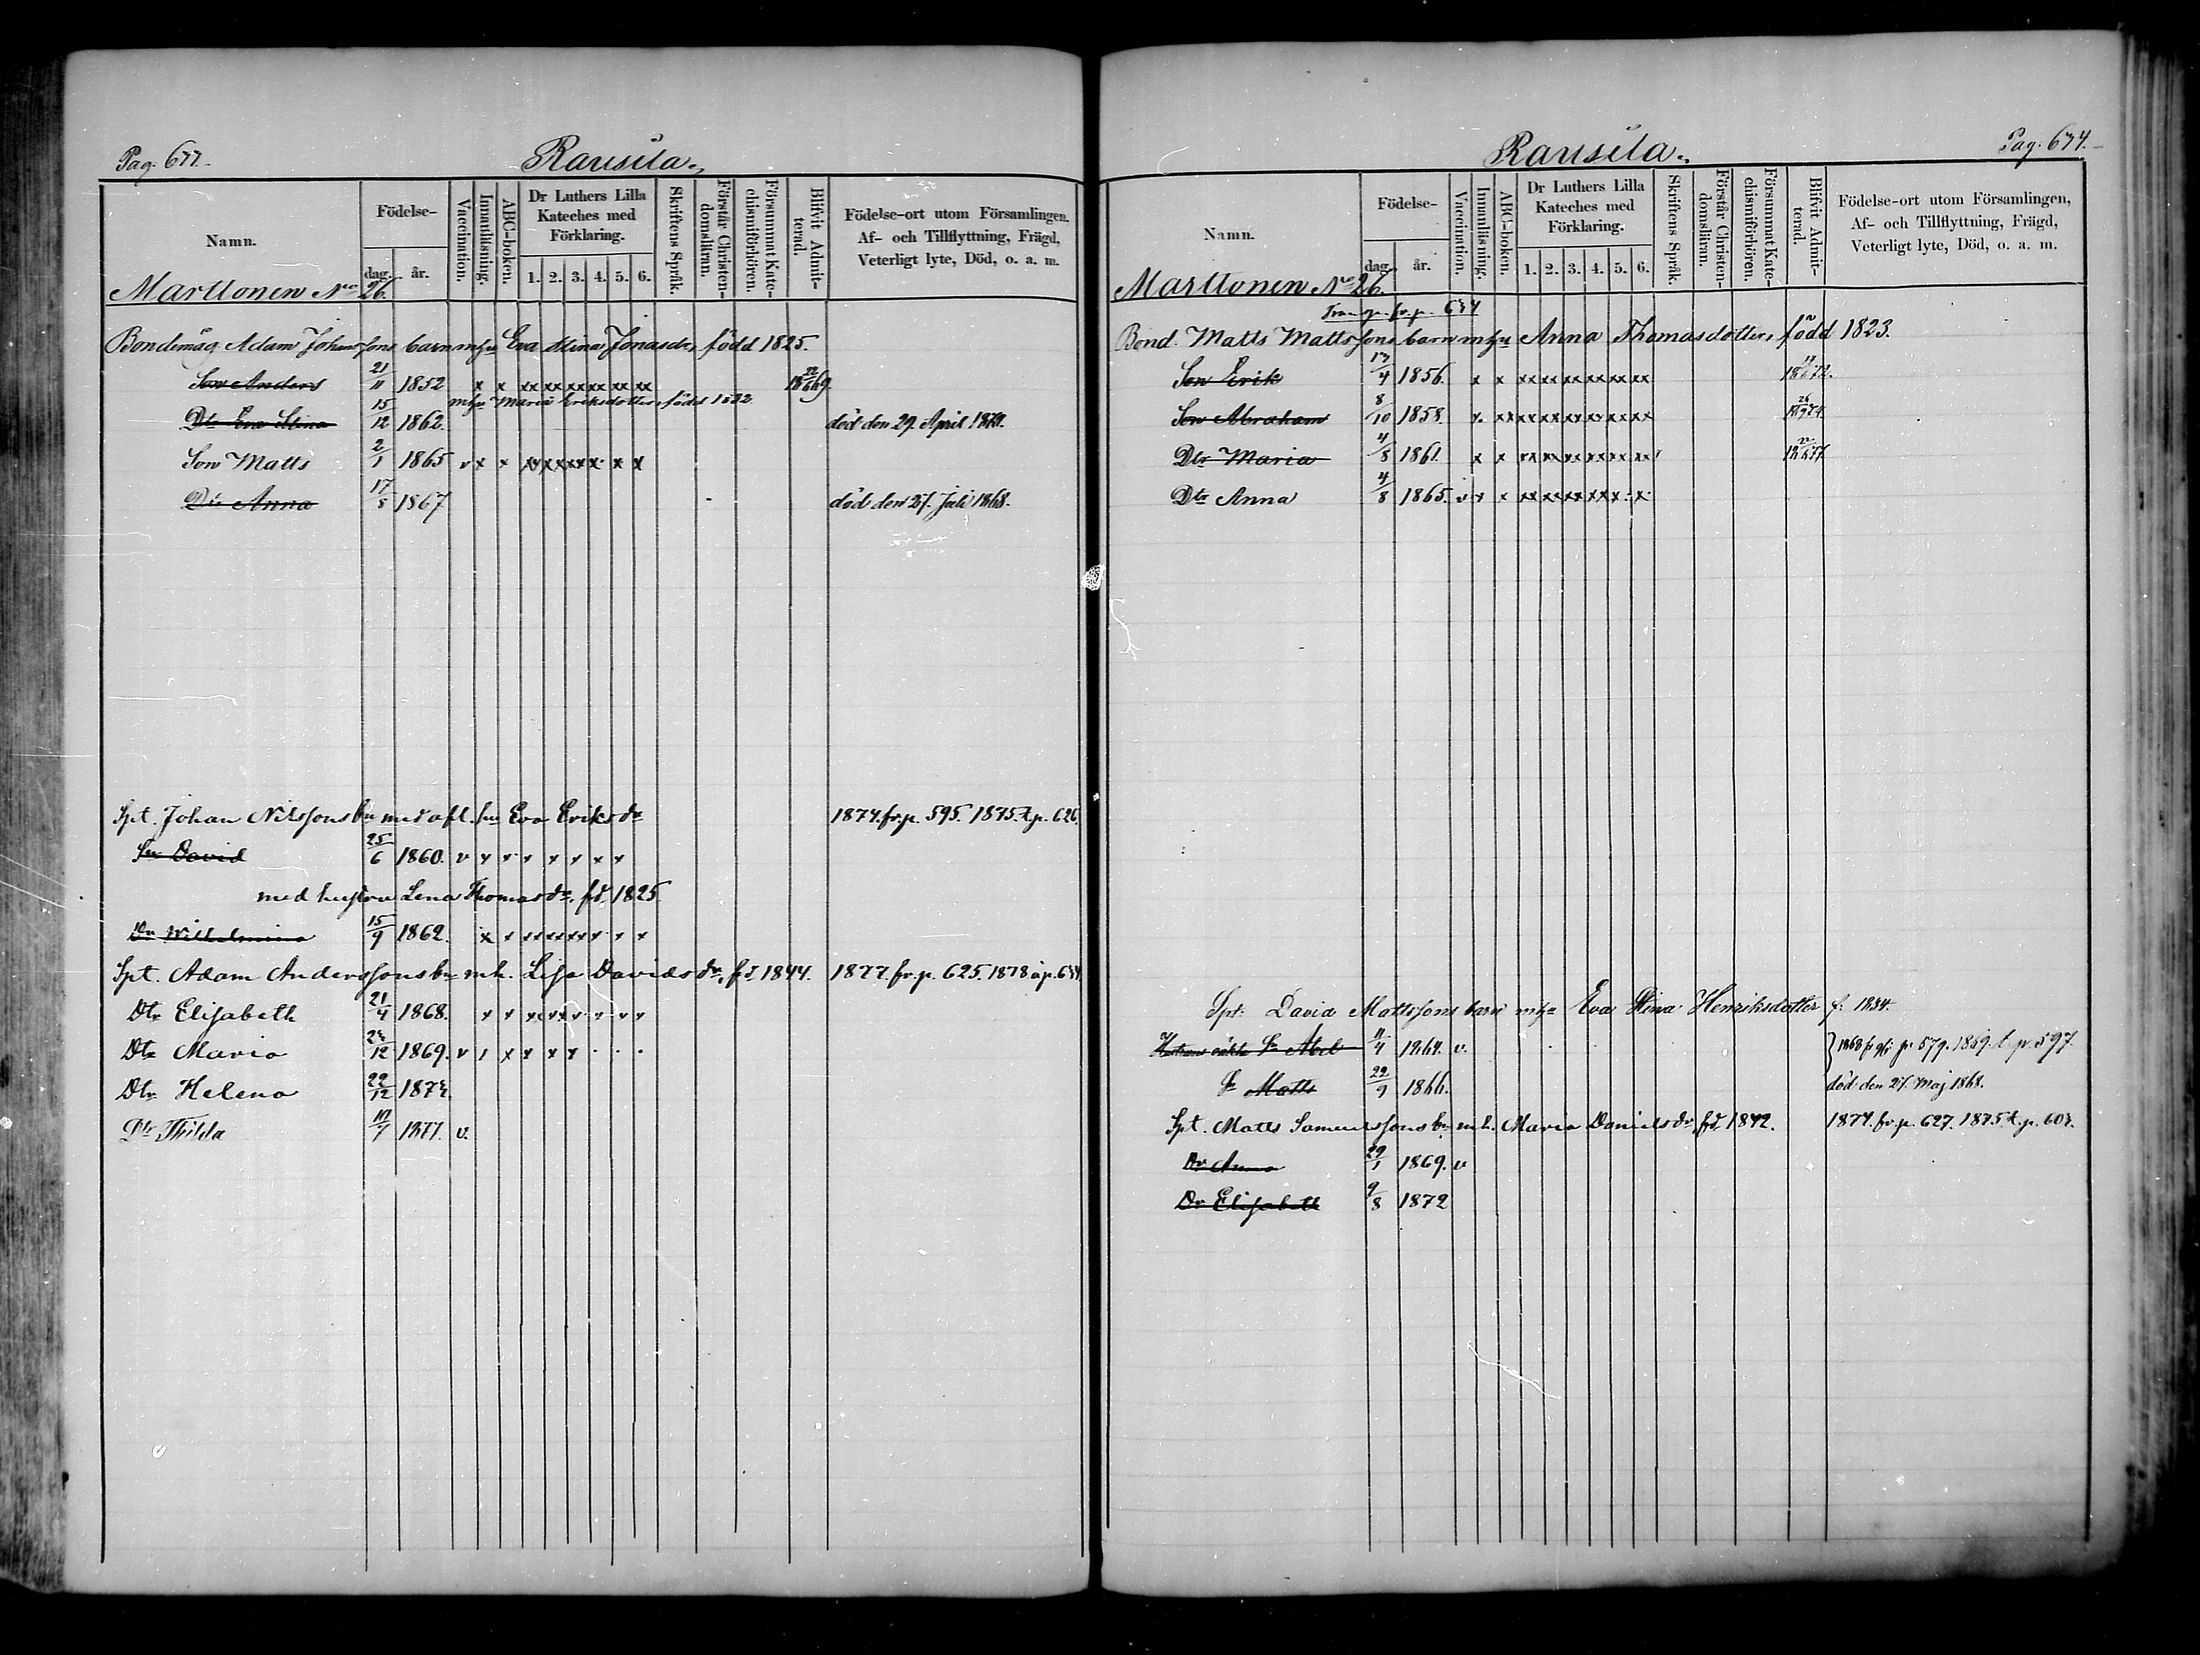 Pag. 677.
Rausila.
Namn.
Födelse-
dag. år.
Vaccination.
Innanläsning.
ABC-boken.
Dr Luthers Lilla
Kateches med
Förklaring.
1. 2. 3. 4. 5. 6.
Skriftens Språk.
Förstår Christen-
domsläran.
Försummat Kate-
chismiförhören.
Blifvit Admit-
terad.
Födelse-ort utom Församlingen,
Af- och Tillflyttning, Frägd,
Veterligt lyte, Död, o. a. m.
Marttonen No 26.
Bondemåg Adam Johanssons barn mhu Eva Stina Jonasdr, född 1825.
Son Anders 21/11 1852 x x xx xx xx xx xx xx 18 22/6 69.
mhu Maria Eriksdotter, född 1832.
Dtr Eva Stina 15/12 1862. död den 29. April 1870.
Son Matts 2/1 1865 v x x xx xx xx x x x
Dtr Anna 17/5 1867 död den 27. Juli 1868.
Spt. Johan Nilssons bn med afl. hu Eva Eriksdr 1874. fr. p. 595. 1875. t. p. 626.
Sn David 25/6 1860. v x x x x x x x
med hustru Lena Thomasdr, fd. 1825.
Dr Wilhelmina 15/9 1862. x x xx xx xx x x x
Spt. Adam Anderssons bn mh. Lisa Davidsdr, fd. 1844. 1877. fr. p. 625. 1878 å p. 644
Dtr Elisabeth 21/4 1868. x x xx xx x x x x
Dtr Maria 1869. v x x x x x . . .
Dtr Helena 22/12 187
Dtr Thilda 10/7 1877. v.
Pag. 674.
Rausila.
Namn.
Födelse-
dag. år.
Vaccination.
Innanläsning.
ABC-boken.
Dr Luthers Lilla
Kateches med
Förklaring.
1. 2. 3. 4. 5. 6.
Skriftens Språk.
Förstår Christen-
domsläran.
Försummat Kate-
chismiförhören.
Blifvit Admit-
terad.
Födelse-ort utom Församlingen,
Af- och Tillflyttning, Frägd,
Veterligt lyte, Död, o. a. m.
Marttonen No 26.
Bond. Matts Mattssons barn mhu Anna Thomasdotter, född 1823.
Son Erik 17/4 1856. x x xx xx xx xx xx xx
Son Abraham 8/10 1858. x xx xx xx xx xx xx xx
Dtr Maria 4/8 1861 x x xx xx xx xx xx xx
Dtr Anna 4/8 1865. v x x xx xx xx xx x x
Spt. David Mattssons barn mhu Eva Stina Henriksdotter f. 1834.
Sn Abel 11/4 1864. v. 1868 fr p. 579. 1869. t. p. 597.
Sn Matts 22/9 1866. död den 27. Maj 1868.
Spt. Matts Samuelssons bn mh. Maria Danielsdr, fd. 1842. 1874. fr. p. 627. 1875. t. p.
Dr Anna 29/1 1869. v
Dr Elisabeth 9/8 1872